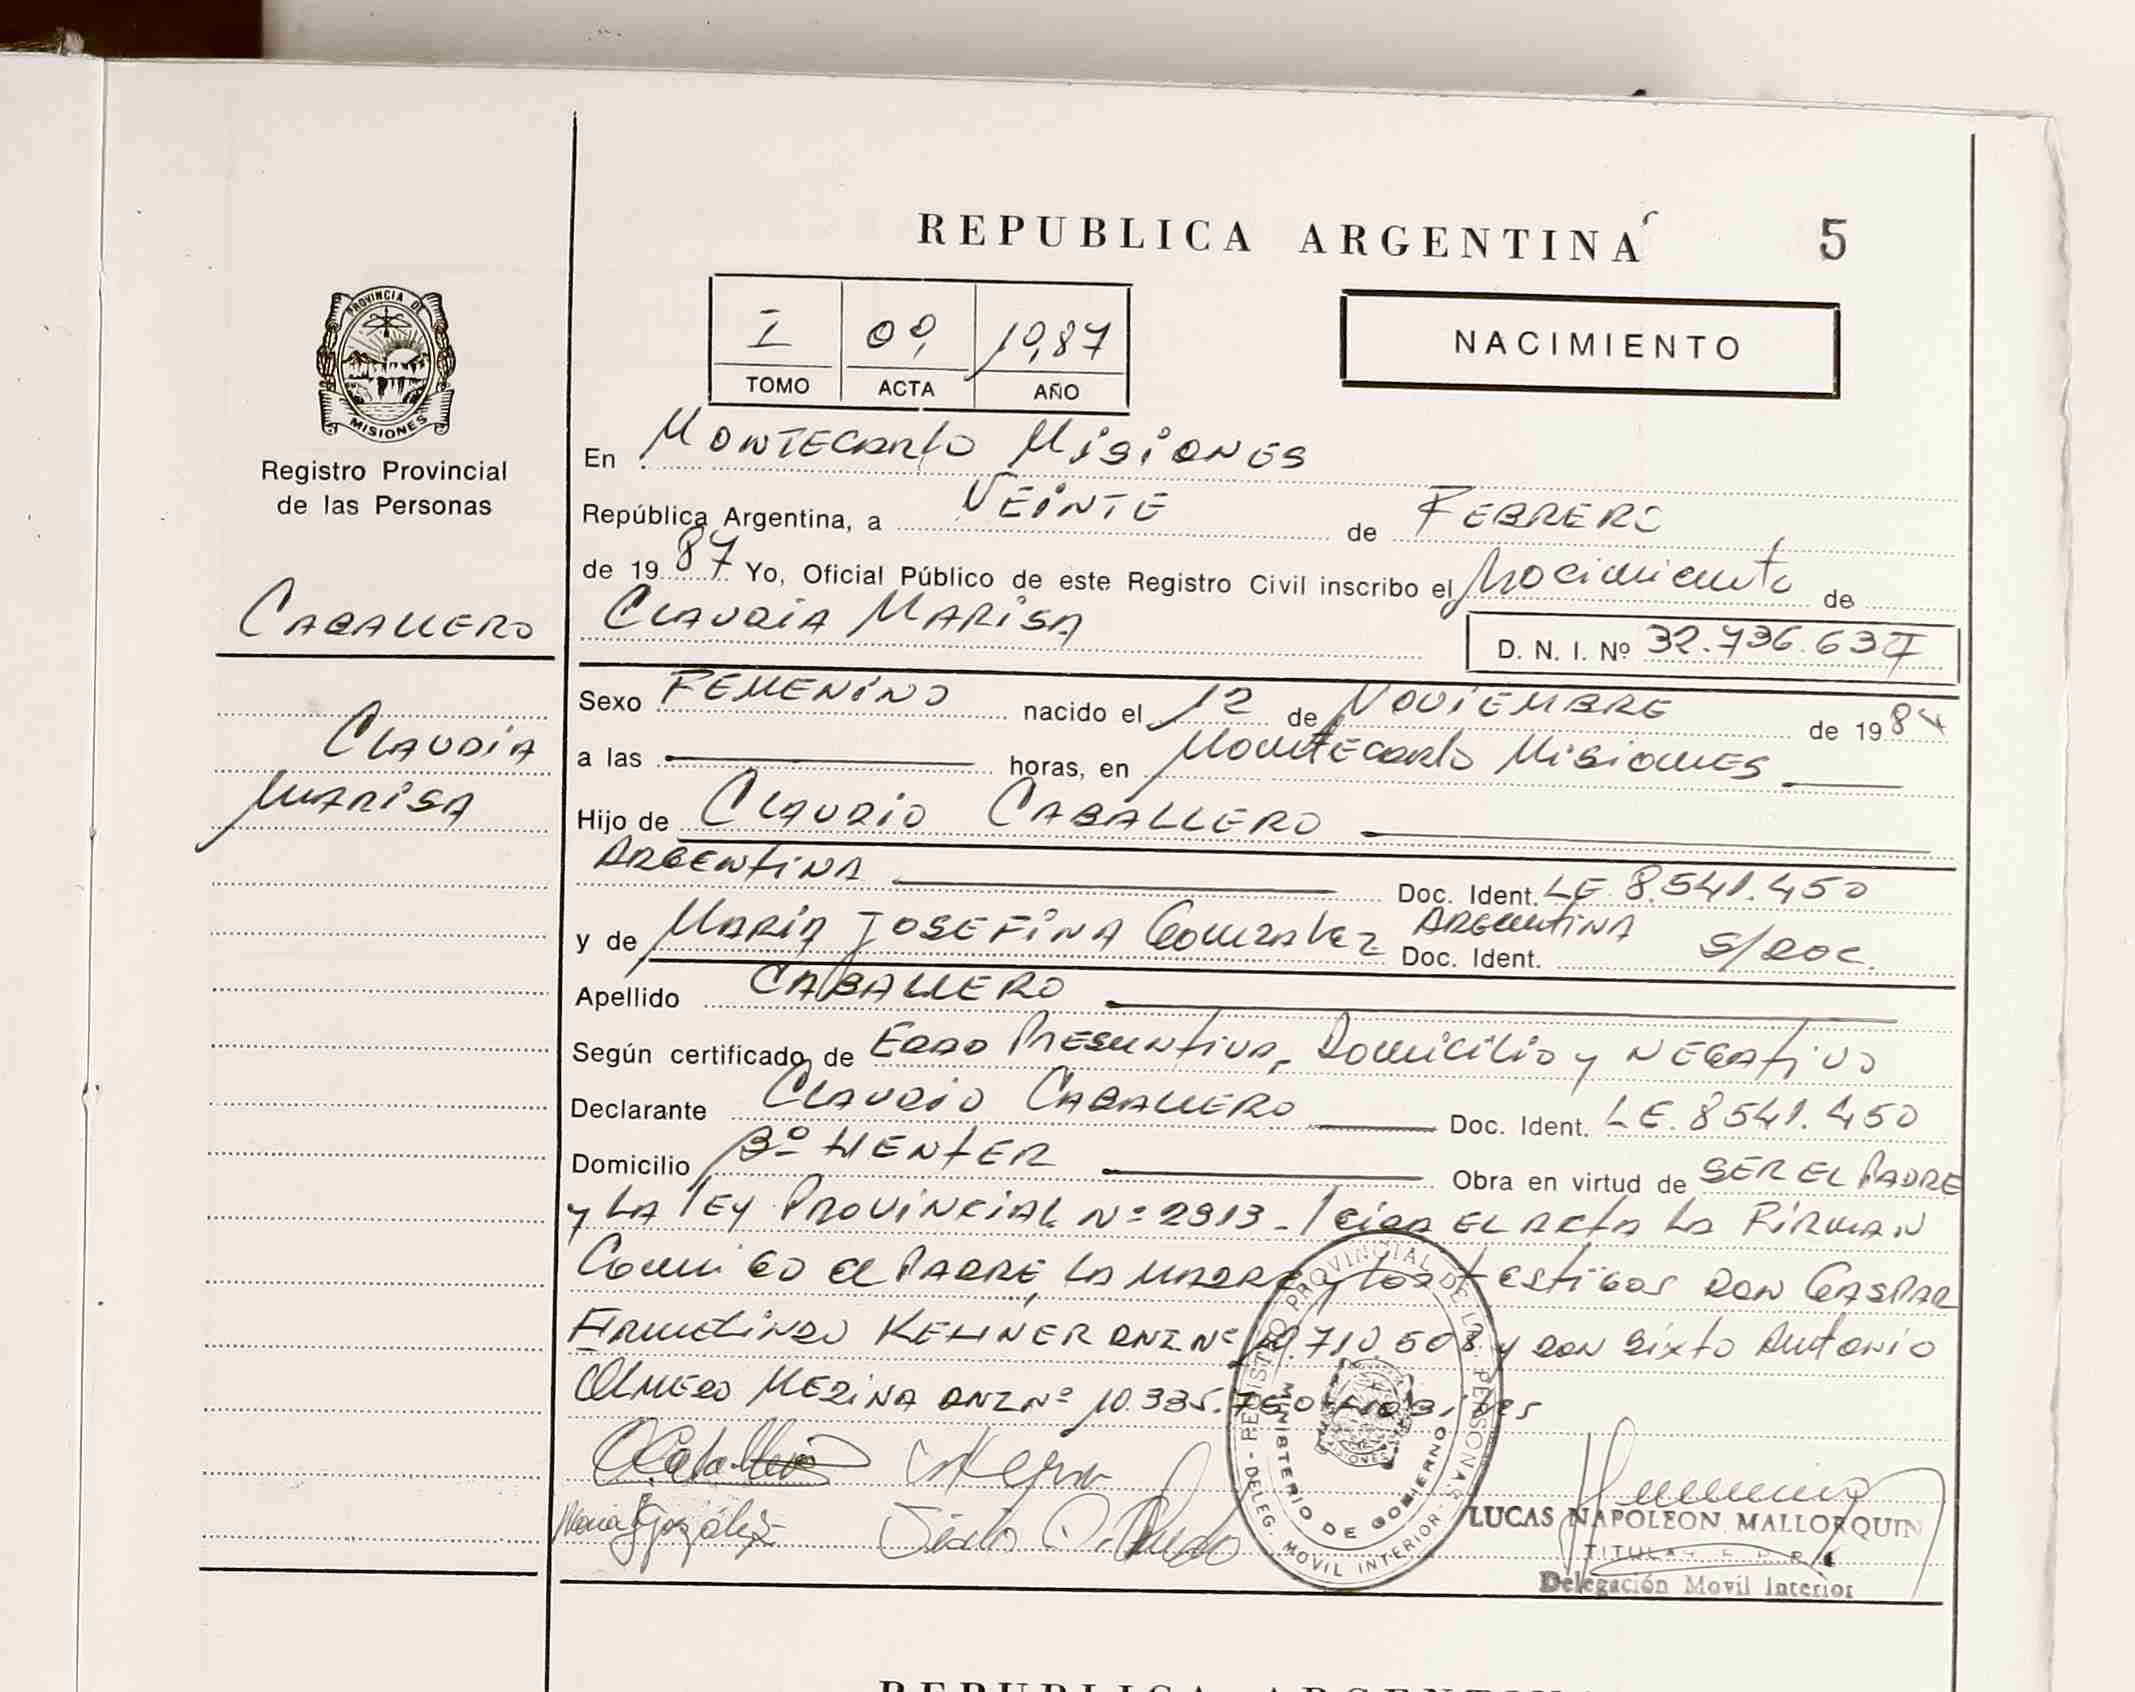 REPUBLICA ARGENTINA 5
I 09 1987
TOMO ACTA AÑO
NACIMIENTO
PROVINCIA DE MISIONES
Registro Provincial
de las Personas
CABALLERO
CLAUDIA
MARISA
En MONTECARLO MISIONES
República Argentina, a VEINTE de FEBRERO
de 1987 Yo, Oficial Público de este Registro Civil inscribo el Nacimiento de
CLAUDIA MARISA D. N. I. Nº 32.736.637
Sexo FEMENINO nacido el 12 de NOVIEMBRE de 1984
a las horas, en MONTECARLO MISIONES
Hijo de CLAUDIO CABALLERO
ARGENTINA Doc. Ident. LE 8.541.450
y de MARIA JOSEFINA GONZALEZ ARGENTINA Doc. Ident. S/DOC.
Apellido CABALLERO
Según certificado de EDAD PRESUNTIVA, DOMICILIO y NEGATIVO
Declarante CLAUDIO CABALLERO Doc. Ident. LE. 8541.450
Domicilio Bº HENTER Obra en virtud de SER EL PADRE
y LA LEY PROVINCIAL Nº 2313 - EL ACTA LA FIRMAN
COMIGO el PADRE, LA MADRE y LOS TESTIGOS DON GASPAR
ERMELINDO KEHNER DNI Nº 710.508 y DON SIXTO ANTONIO
OLMEDO MEDINA DNI Nº 10.335.760
Maria J González
REGISTRO PROVINCIAL DE LAS PERSONAS
MINISTERIO DE GOBIERNO
DELEG. MOVIL INTERIOR
LUCAS NAPOLEON MALLORQUIN
TITULAR
Delegación Movil Interior
REPUBLICA ARGENTINA